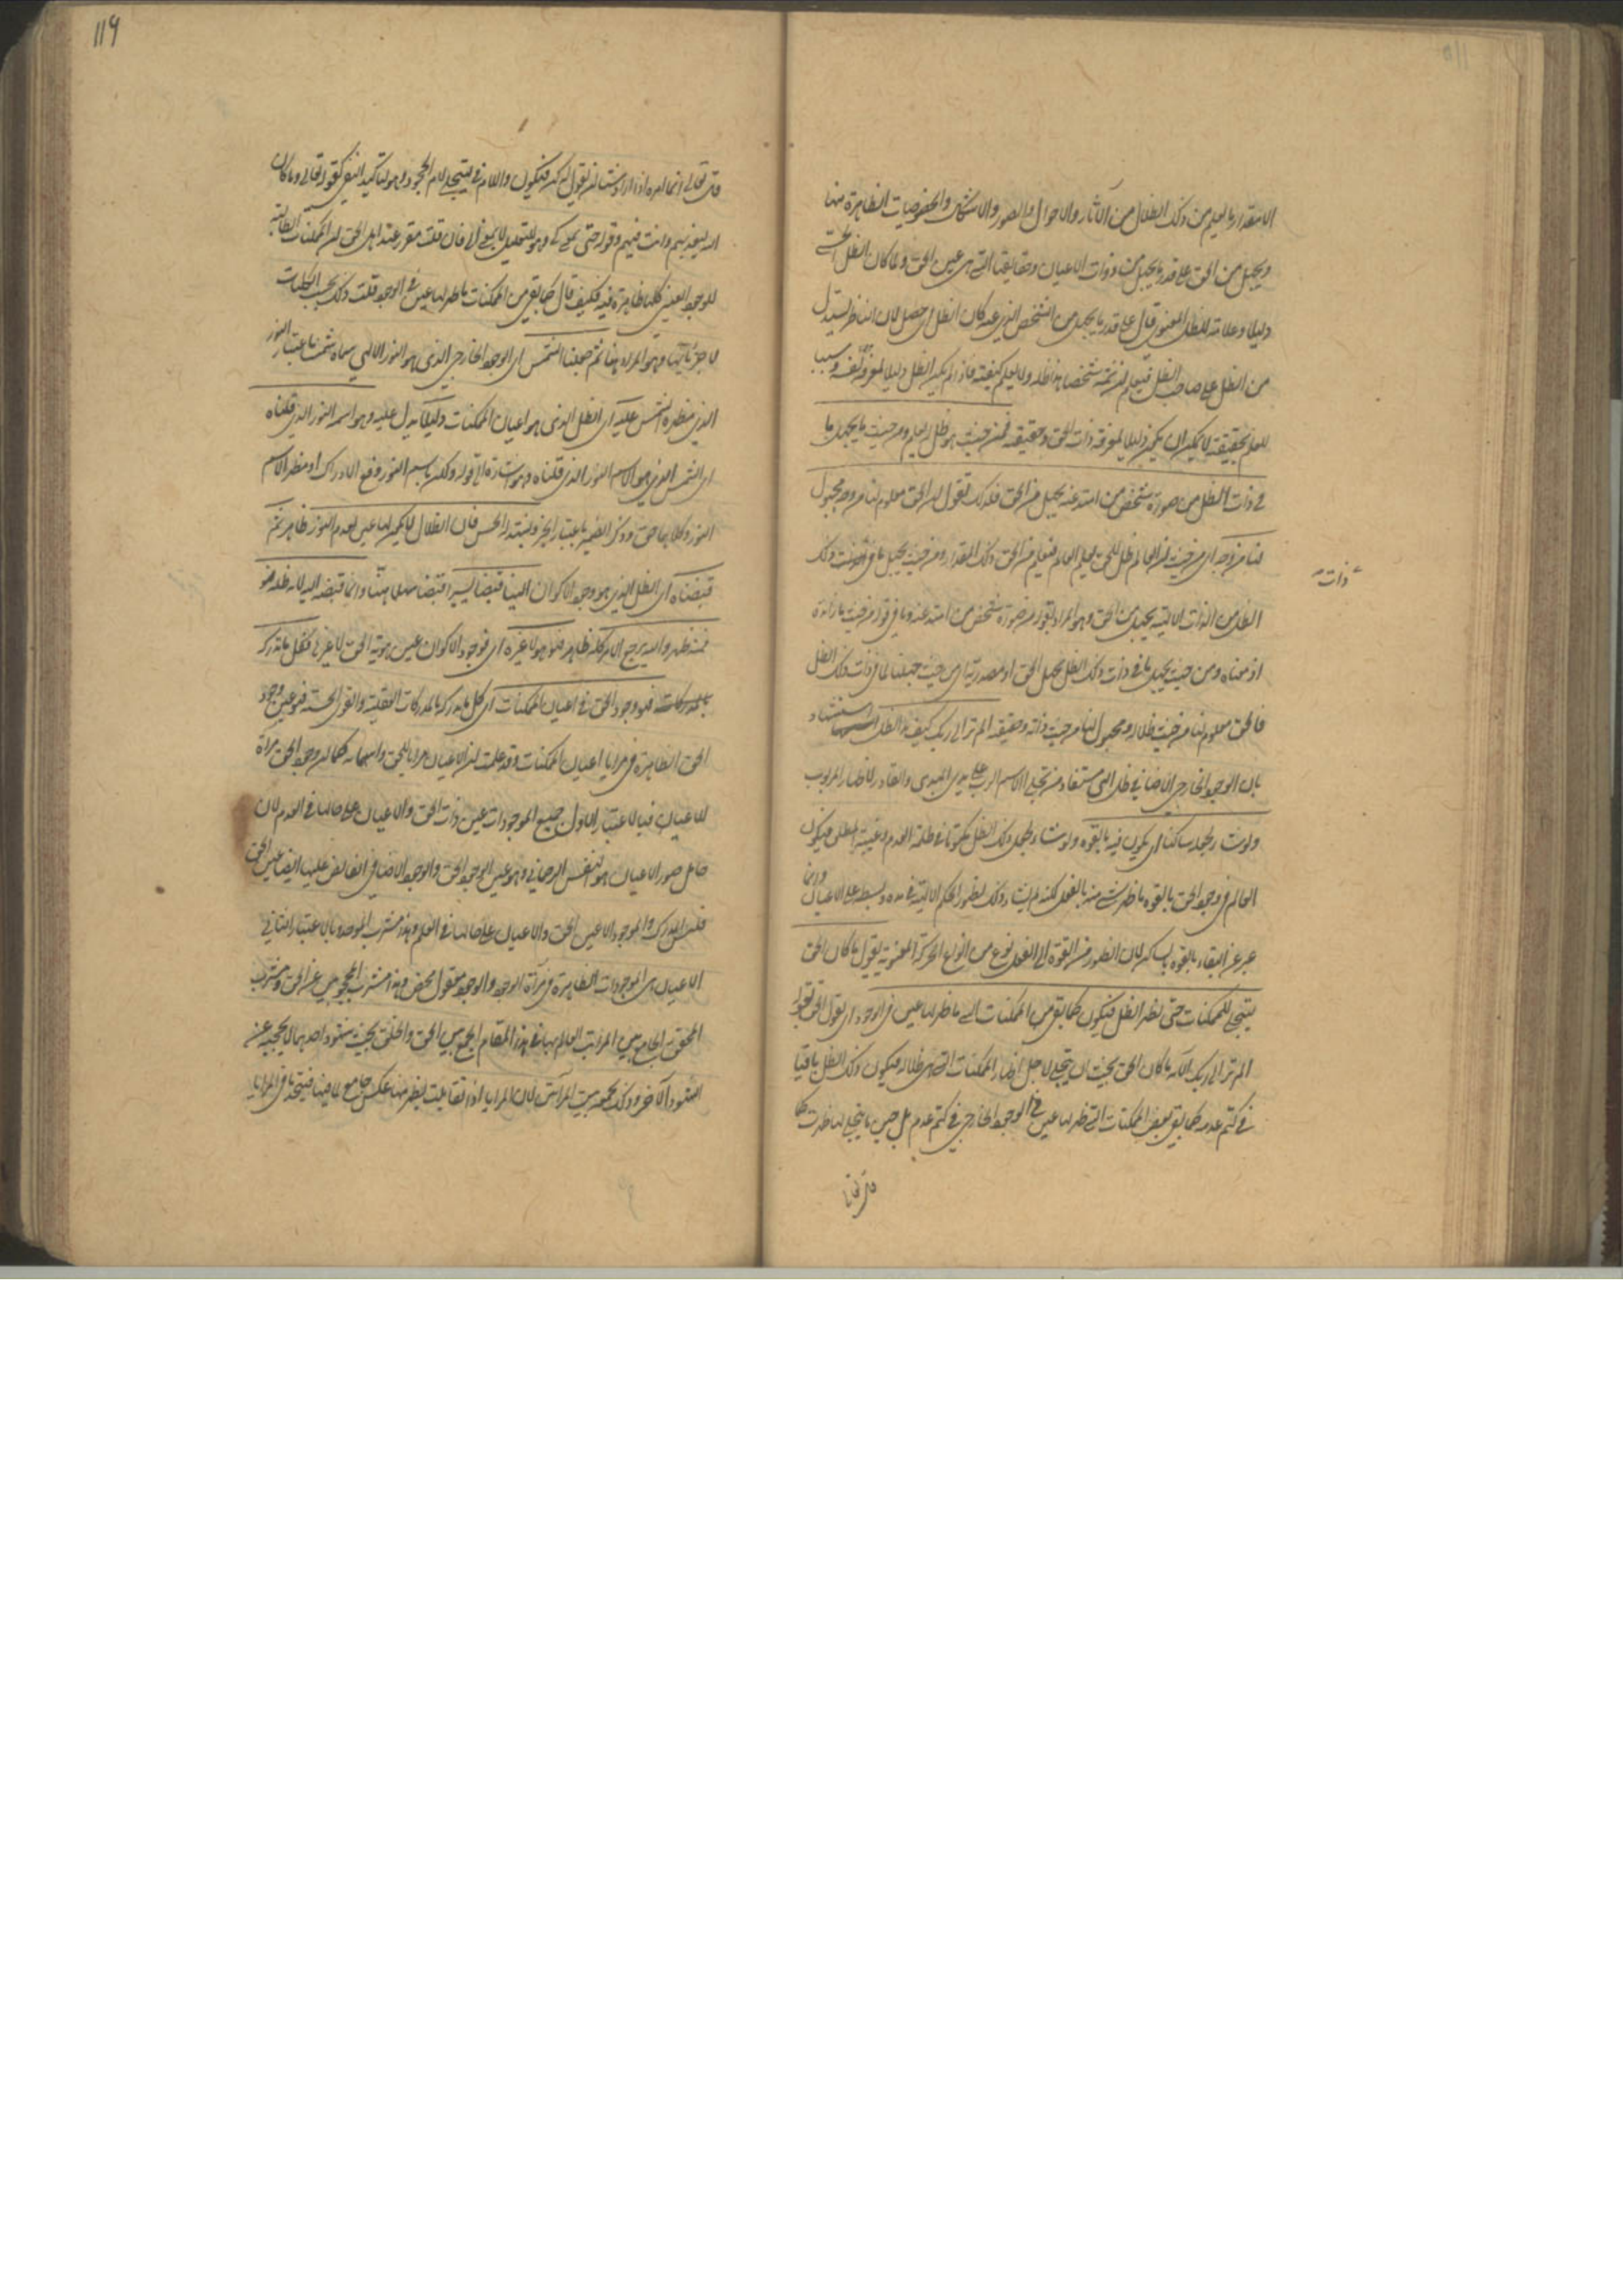 الا مقدار ما يعلم من ذلك الظلال من الآثار والاحوال والصور والاشكال والخصوصيات الظاهرة منها
ويجهل من الحق على قدر ما يجهل من ذوات الاعيان وحقايقها التى هى عين الحق ولما كان الظل الحسى
دليلا وعلامة للظل المعنوى قال على قدر ما يجهل من الشخص الذى عنه كان الظل اى حصل لان الناظر يستدل
من الظل على صاحب الظل فيعلم ان ثمة شخصا هذا ظله ولا يعلم كيفيته فاذا لم يكن الظل دليلا لمعرفة نفسه وسببا
للعلم بحقيقته لا يمكن ان يكون دليلا لمعرفة ذات الحق وحقيقته فمن حيث هو ظل له يعلم ومن حيث ما يجهل ما
فى ذات الظل من صورة شخص من امتد عنه يجهل من الحق فلذلك نقول ان الحق معلوم لنا من وجه مجهول
لنا من وجه اى من حيث ان العالم ظل للحق يعلم العالم فيعلم من الحق ذلك المقدار ومن حيث يجهل ما فى ذلك
ذات
الظل من الذات الالهية يجهل من الحق وهو المراد بقوله من صورة شخص من امتد عنه وما فى قوله من حيث ما زائدة
اذ معناه ومن حيث يجهل ما فى ذات ذلك الظل يجهل الحق او مصدرية اى من حيث جهلنا لما فى ذات ذلك الظل
فالحق معلوم لنا من حيث ظلاله ومجهول لنا من حيث ذاته وحقيقته الم تر الى ربك كيف مد الظل استشهاد
بان الوجود الخارجى الاضافى ظل الهى مستفاد من تجلى الاسم الرب على يدى المبدى والقادر لاظهار المربوب
ولو شاء لجعله ساكنا اى يكون فيه بالقوة ولو شاء لجعل ذلك الظل مكتوما فى ظلمة العدم وغيبة المطلق فيكون
العالم فى وجود الحق بالقوة ما ظهر شئ منه بالفعل لكنه لم يشاء ذلك لظهور الحكم الالهية فى مده وبسطه على الاعيان وانما
عبر عن البقاء بالقوة بالساكن لان الظهور من القوة الى الفعل نوع من انواع الحركة المعنوية يقول ما كان الحق
ليتجلى للممكنات حتى يظهر الظل فيكون كما بقى من الممكنات التى ما ظهر لها عين فى الوجود اى يقول الحق بقوله
الم تر الى ربك الآية ما كان الحق بحيث ان يتجلى لاجل اظهار الممكنات التى هى ظلاله فيكون ذلك الظل باقيا
فى كتم عدمه كما بقى بعض الممكنات التى ما ظهر لها عين فى الوجود الخارجى فى كتم عدم بل حين ما يتجلى لها ظهرت كما
قال تعالى
119
قال تعالى انما امره اذا اراد شيئا ان نقول له كن فيكون واللام فى ليتجلى لام الجحود وهو لتاكيد النفى كقوله تعالى وما كان
الله ليعذبهم وانت فيهم وقوله حتى بمعنى كى وهو للتعليل لا بمعنى الى فان قلت مقرر عند اهل الحق ان الممكنات الطالبة
للوجود العينى كلها ظاهرة فيه فكيف قال كما بقى من الممكنات ما ظهر لها عين فى الوجود قلت ذلك بحسب الكليات
لا جزئياتها وهو المراد هنا ثم جعلنا الشمس اى الوجود الخارجى الذى هو النور الالهى سماه شمسا باعتبار النور
الذى مظهره الشمس عليه اى الظل الذى هو اعيان الممكنات دليلا يدل عليه وهو اسمه النور الذى قلناه
اى الشمس الذى هو الاسم النور الذى قلناه وهو اشارة الى قوله ولكن باسم النور وقع الادراك او مظهر الاسم
النور وكلاهما حق وذكر الضمير باعتبار الخبر ويشهد له الحس فان الظلال لا يكون لها عين بعدم النور ظاهر ثم
قبضناه اى الظل الذى هو وجود الاكوان الينا قبضا يسيرا قبضا سهلا هينا وانما قبضه اليه لانه ظله
فمنه ظهر واليه يرجع الامر كله ظاهر فهو هو لا غيره اى فوجود الاكوان عين هوية الحق لا غيرها فكل ما ندركه
بالمدركات فهو وجود الحق فى اعيان الممكنات اى كل ما ندركه بالمدركات العقلية والقوى الحسية فهو عين وجود
الحق الظاهرة فى مرايا اعيان الممكنات وقد علمت ان الاعيان مرايا للحق واسمائه كما ان وجود الحق مرآة
للاعيان فبالاعتبار الاول جميع الموجودات عين ذات الحق والاعيان على حالها فى العدم لان
حامل صور الاعيان هو النفس الرحمانى وهو عين الوجود الحق والوجود الاضافى الفائض عليها ايضا عين الحق
فليس المدرك والموجود الا عين الحق والاعيان على حالها فى العلم وهذا مشرب الموحد وبالاعتبار الثانى
الاعيان هى الموجودات الظاهرة فى مرآة الوجود والوجود معقول محض وهذا مشرب المحجوبين عن الحق ومشرب
المحقق الجامع بين المراتب العالم بها فى هذا المقام الجمع بين الحق والخلق بحيث شهود احدهما لا يحجبه عن
شهود الآخر وذلك لجمعه بين المرآتين لان المرايا اذا تقابلت يظهر منها عكس جامع لما فيها فيتحد ما فى المرايا